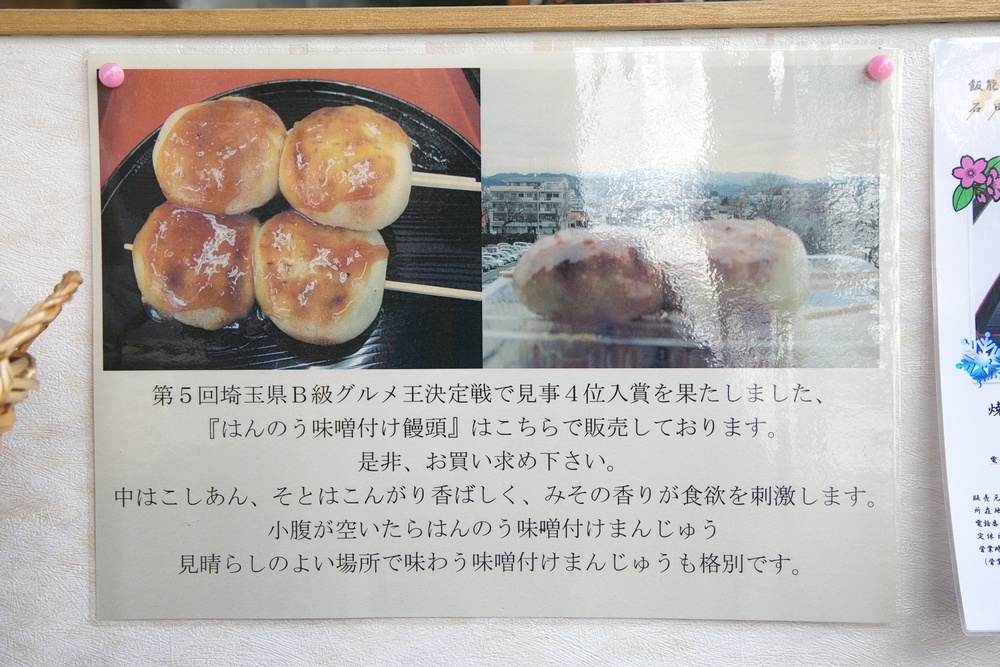 第５回埼玉県Ｂ級グルメ王決定戦で見事４位入賞を果たしました、
『はんのう味噌付け饅頭』はこちらで販売しております。
是非、お買い求め下さい。
中はこしあん、そとはこんがり香ばしく、みその香りが食欲を刺激します。
小腹が空いたらはんのう味噌付けまんじゅう
見晴らしのよい場所で味わう味噌付けまんじゅうも格別です。
飯能
販売元
所在地
電話番
定休
営業時
(営業